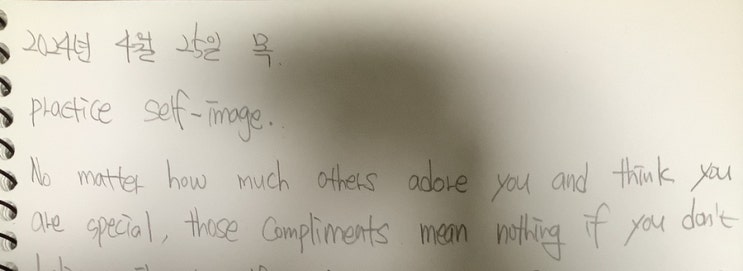 2024년 4월 25일 목.
practice self-image..
No matter how much others adore you and think you
are special, those compliments mean nothing if you don't